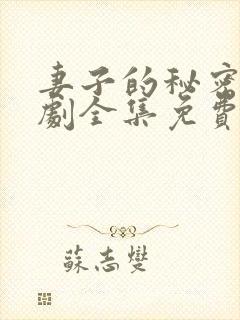 妻子的秘密
劇全集免費
蘇志燮